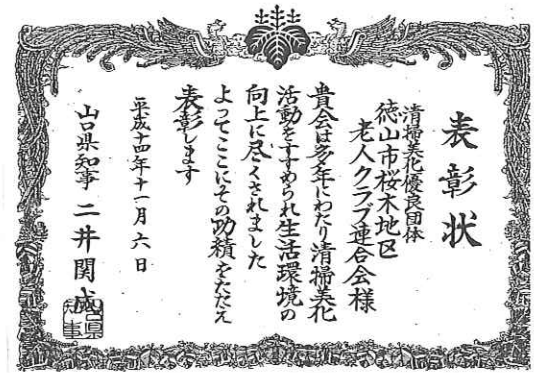 表彰状
清掃美化優良団体
徳山市桜木地区
老人クラブ連合会様
貴会は多年にわたり清掃美化
活動をすすめられ生活環境の
向上に尽くされました
よってここにその功績をたたえ
表彰します
平成十四年十一月六日
山口県知事 二井関成
山口県
知事